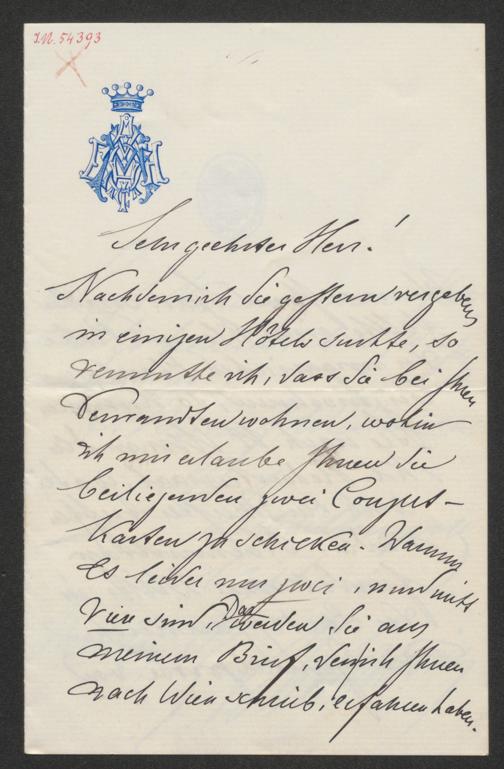 I.N. 54393
Sehr geehrter Herr!
Nachdem ich Sie gestern vergebens
in einigen Hôtels suchte, so
vermuthe ich, dass Sie bei Ihren
Verwandten wohnen, wohin
ich mir erlaube Ihnen die
beiliegenden zwei
Karten zu schicken. Warum
es leider nur zwei, und nicht
vier sind, Das werden Sie aus
meinem Brief, den ich Ihnen
nach Wien schrieb, erfahren haben.